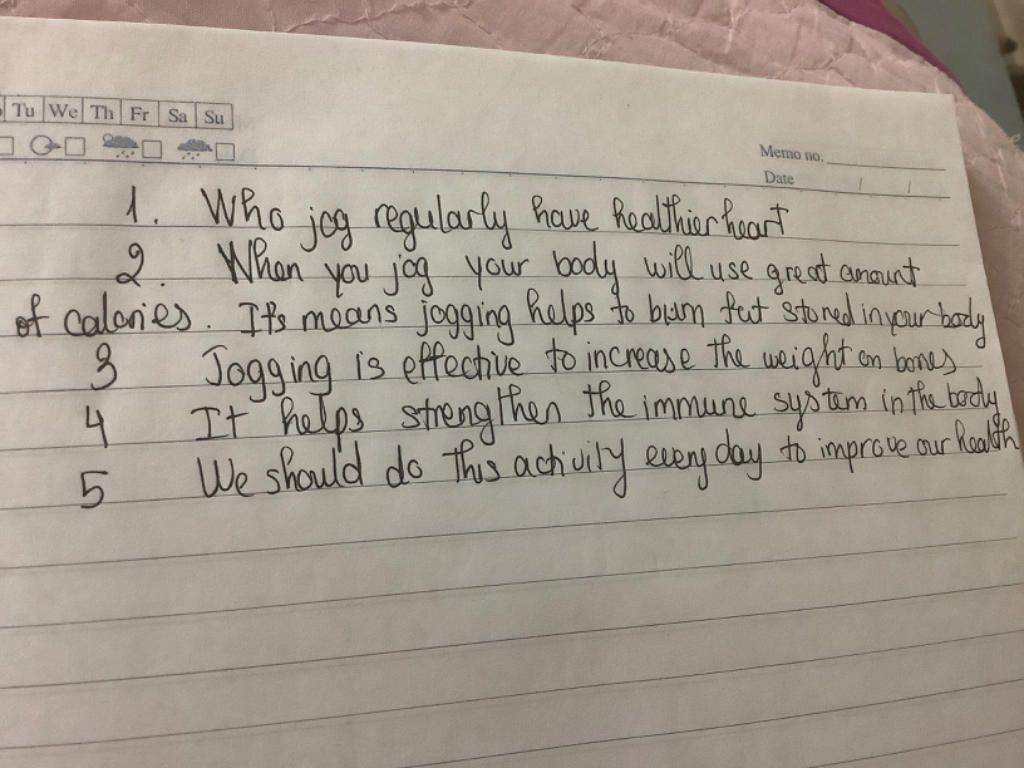 Tu We Th Fr Sa Su
Memo no.
Date / /
1. Who jog regularly have healthier heart
2. When you jog your body will use great amount
of calories. It's means jogging helps to burn fat stored in your body
3 Jogging is effective to increase the weight on bones
4 It helps strengthen the immune system in the body
5 We should do this activity every day to improve our health